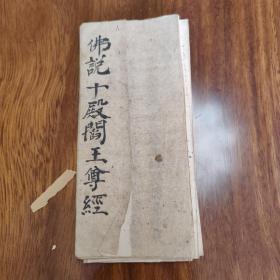 佛說十殿閻王尊經